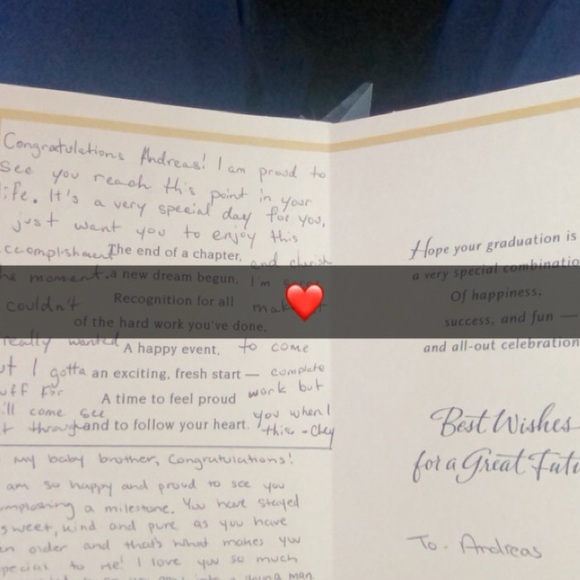 Congratulations Andreas! I am proud to
See you reach this point in your
life. It's a very special day for you,
just want you to enjoy this
ccomplishment The end of a chapter, and cherish
he moment, a new dream begun, I'm
couldn't Recognition for all mak
of the hard work you've done,
really wanted A happy event, to come
ut I gotta an exciting, fresh start — complete
uff for A time to feel proud work but
ill come see and to follow your heart. you when I
t through this - Chey
my baby brother, Congratulations!
am so happy and proud to see you
a milestone. You have stayed
sweet, kind and pure as you have
en older and that's what makes you
pecial to me! I love you so much
a young man
Hope your graduation is
a very special combinatio
Of happiness,
success, and fun —
and all-out celebration
Best Wishes
for a Great Futu
To - Andreas